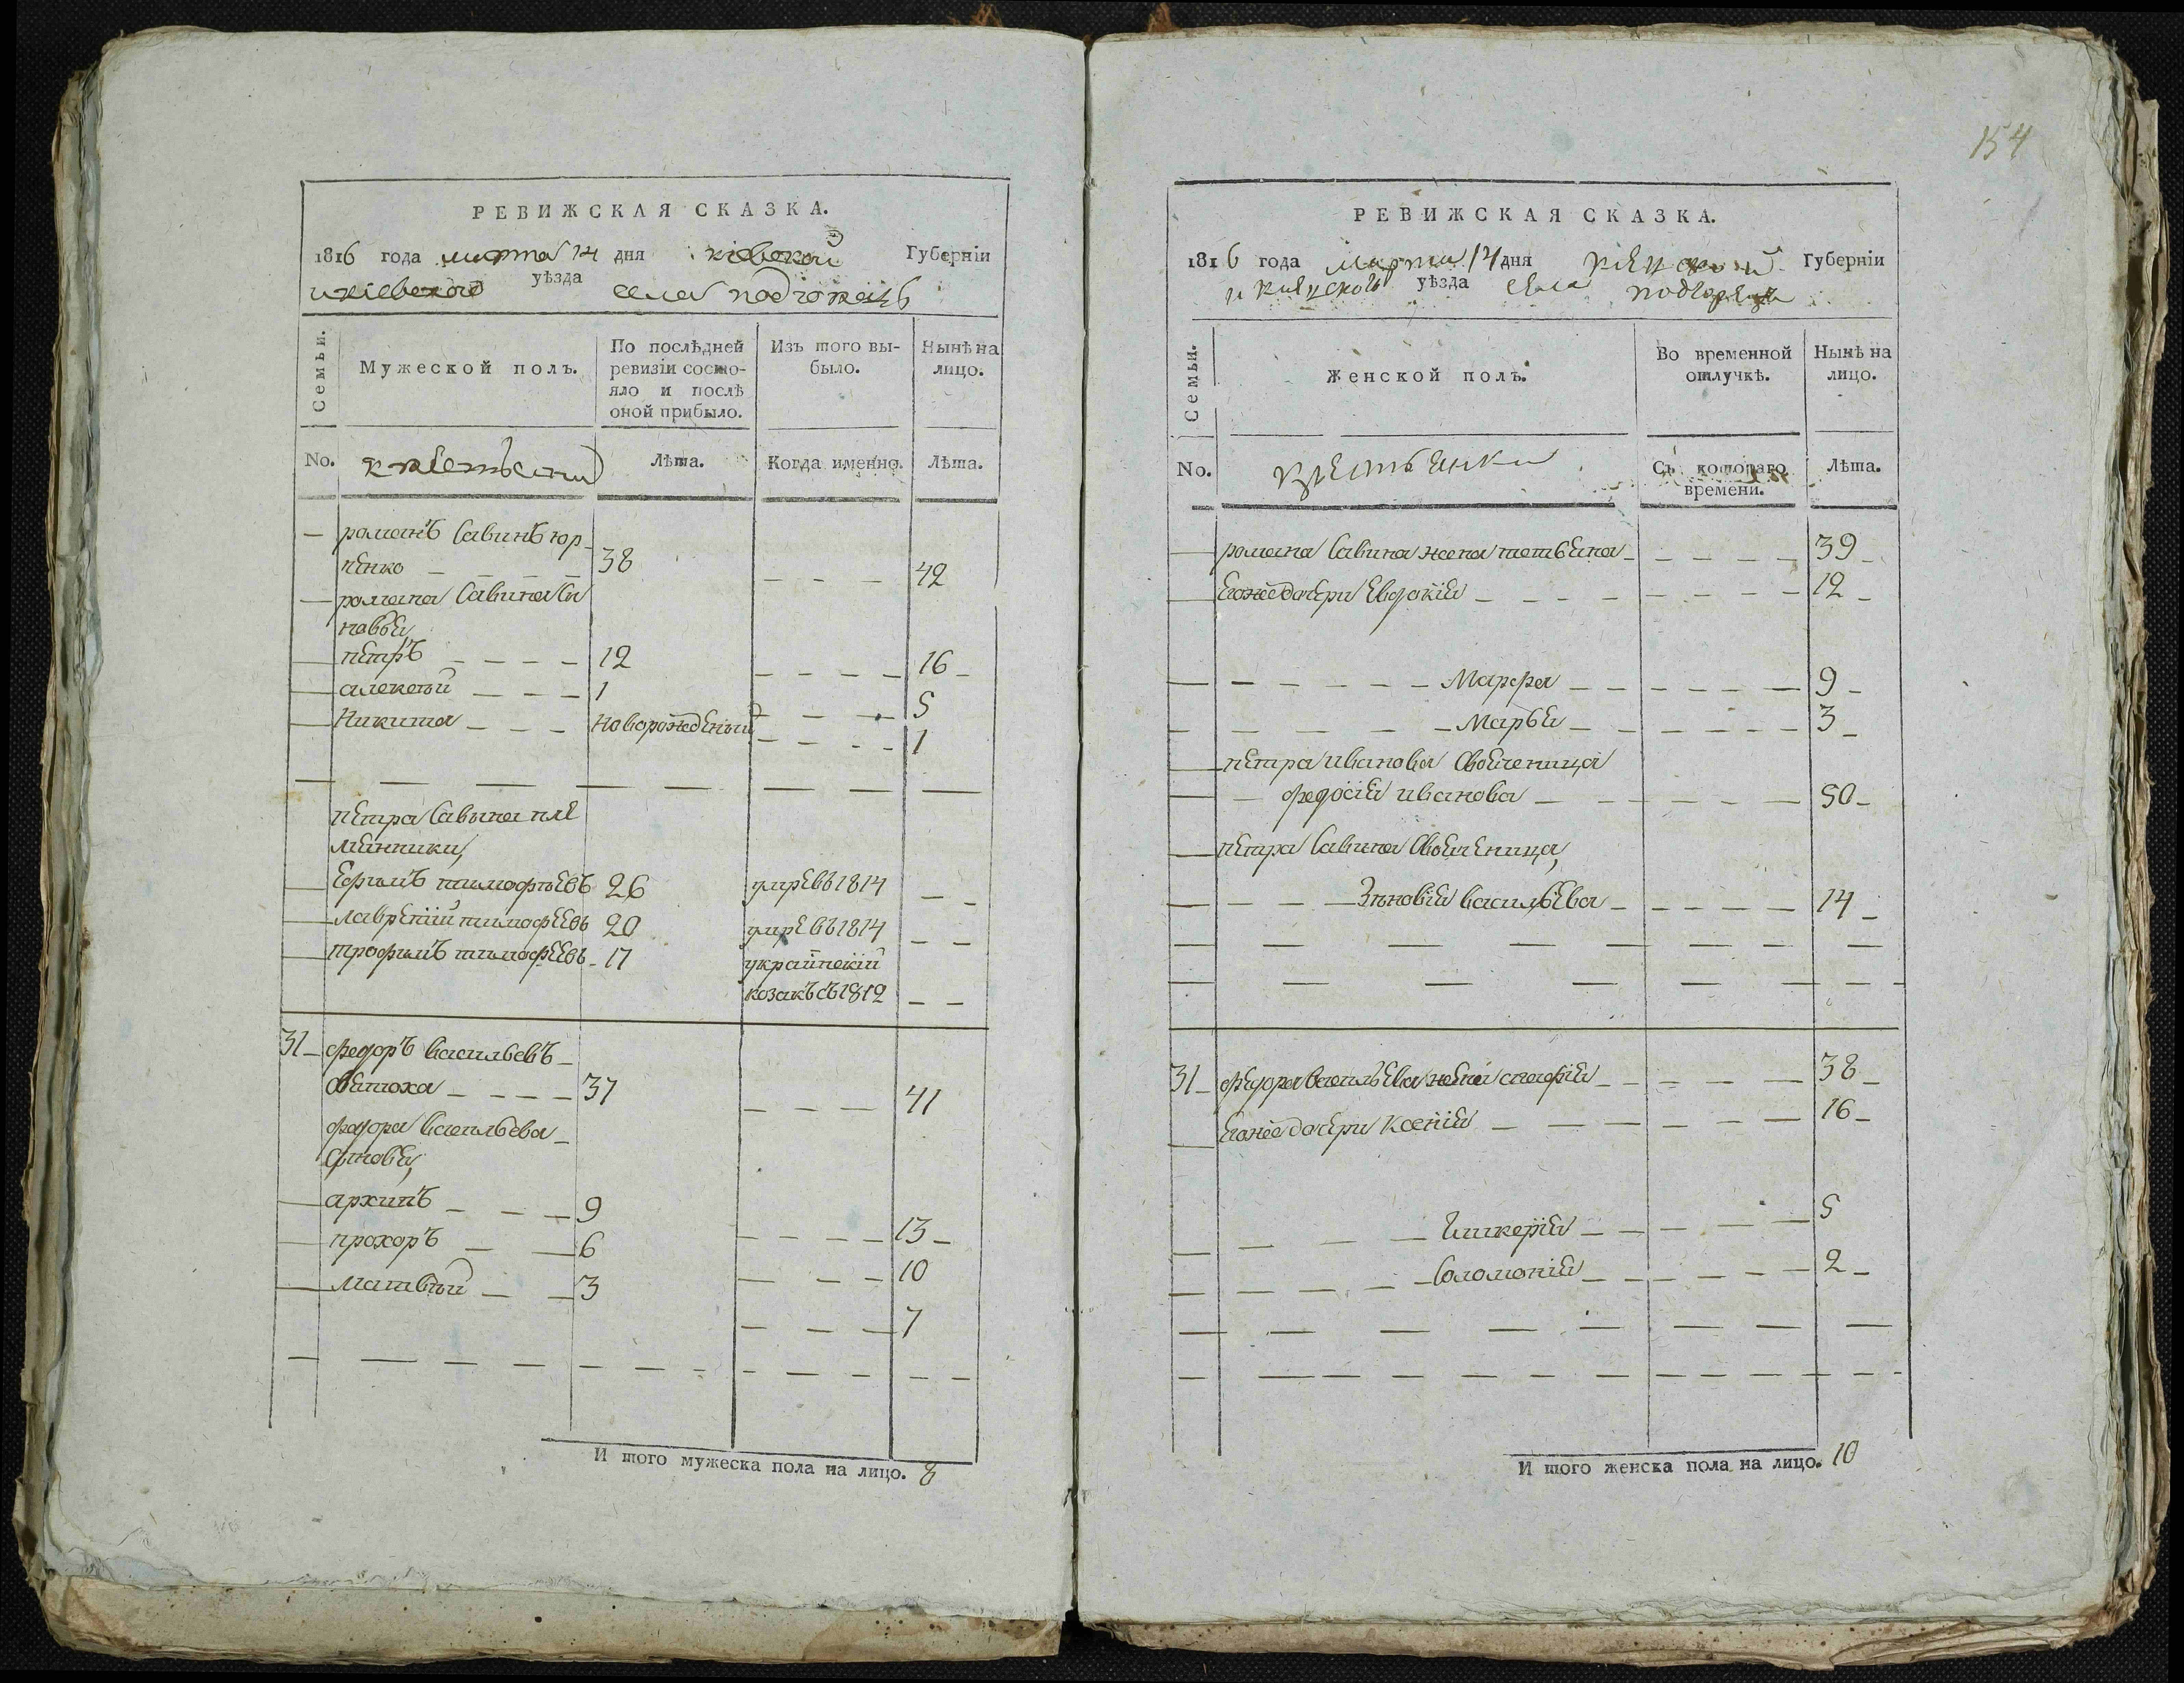 РЕВИЖСКАЯ СКАЗКА.
1816 года марта 14 дня кіевской Губерніи
икіевского уѣзда села подгорецъ
Семьи.
Мужеской полъ.
По послѣдней ревизіи состояло и послѣ оной прибыло.
Изъ того выбыло.
Нынѣ на лицо.
No.
Лѣта.
Когда именно.
Лѣта.
— романъ Савинъ юр
пенко — — — — 38 — — — 42
— романа Савина Си
новья
— петръ — — — — 12 — — — — 16 —
— алексѣй — — — 1 — — — 5
— Никита — — — новорожденый — — — — 1
— — — — — — — —
петра Савина пле
мянники,
— Ефимъ тимофѣевъ 26 умре въ 1814 — —
— лаврентій тимофеевъ 20 умре въ 1814 — —
— трофимъ тимофеевъ — 17 украинскій
козакъ съ 1812 — —
31 — федоръ васильевъ —
— — — — 37 — — — 41
федора васильева —
Синовья,
— архипъ — — — 9 — — — — 13 —
— прохоръ — — 6 — — — — 10
— матвѣй — — 3 — — — 7
— — — — — — — — — — — — —
И того мужеска пола на лицо. 8
154
РЕВИЖСКАЯ СКАЗКА.
1816 года марта 14 дня кіевской Губерніи
и киевского уѣзда села подгорецъ
Семьи.
Женской полъ.
Во временной отлучкѣ.
Нынѣ на лицо.
No.
крестьянки
Съ котораго времени.
Лѣта.
— романа Савина жена татьяна — — — — — 39 —
— Егоже дочери Евдокія — — — — — — — — 12 —
— — — — — — Марфа — — — — — — 9 —
— — — — — — Марья — — — — — — 3 —
— петра иванова своячница
— — федосія иванова — — — — — — 50 —
— петра Савина своячница,
— — — — Зѣновія васильева — — — — — 14 —
— — — — — — — — — —
— — — — — — — — —
31 — федора васильева жена — — — — — 38 —
— Егоже дочери Ксенія — — — — — — 16 —
— — — — Гликерія — — — — — 5
— — — — — Соломонія — — — — — 2 —
— — — — — — — — —
— — — — — — — — — — — — — —
И того женска пола на лицо. 10